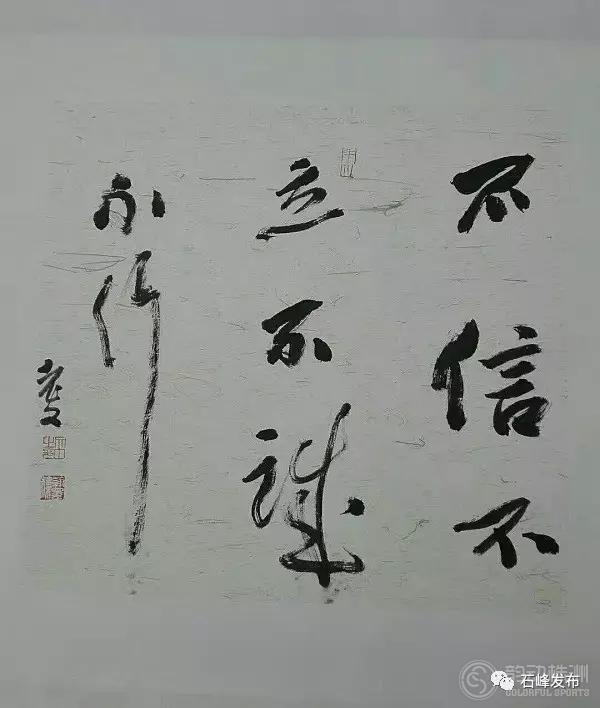 不信不
立不诚
不行
石峰发布
韵动株洲
COLORFUL SPORTS